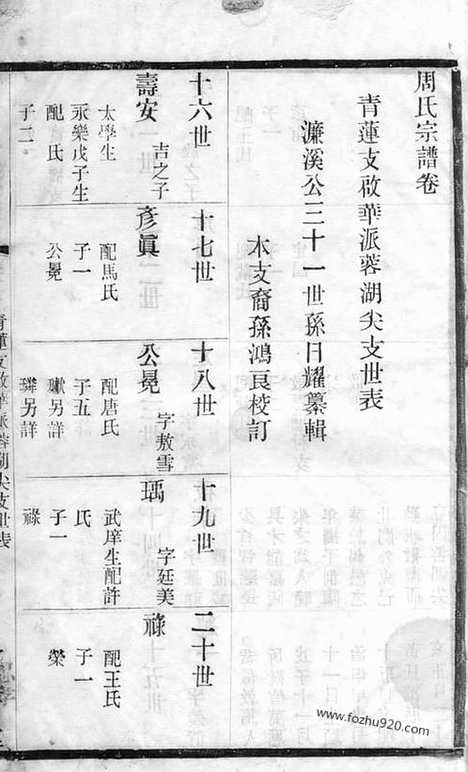 周氏宗譜卷
青蓮支啟華派蓉湖尖支世表
濂溪公三十一世孫日耀纂輯
本支裔孫鴻良校訂
十六世
壽安
吉之子
太學生
永樂戊子生
配 氏
子二
十七世
彥眞
配馬氏
子一
公冕
十八世
公冕
字敖雪
配唐氏
子五
另詳
璘另詳
十九世
瑀
字廷美
武庠生配許
氏
子一
祿
二十世
祿
配王氏
子一
榮
青蓮支啟華派蓉湖尖支世表
www.fozhu920.com